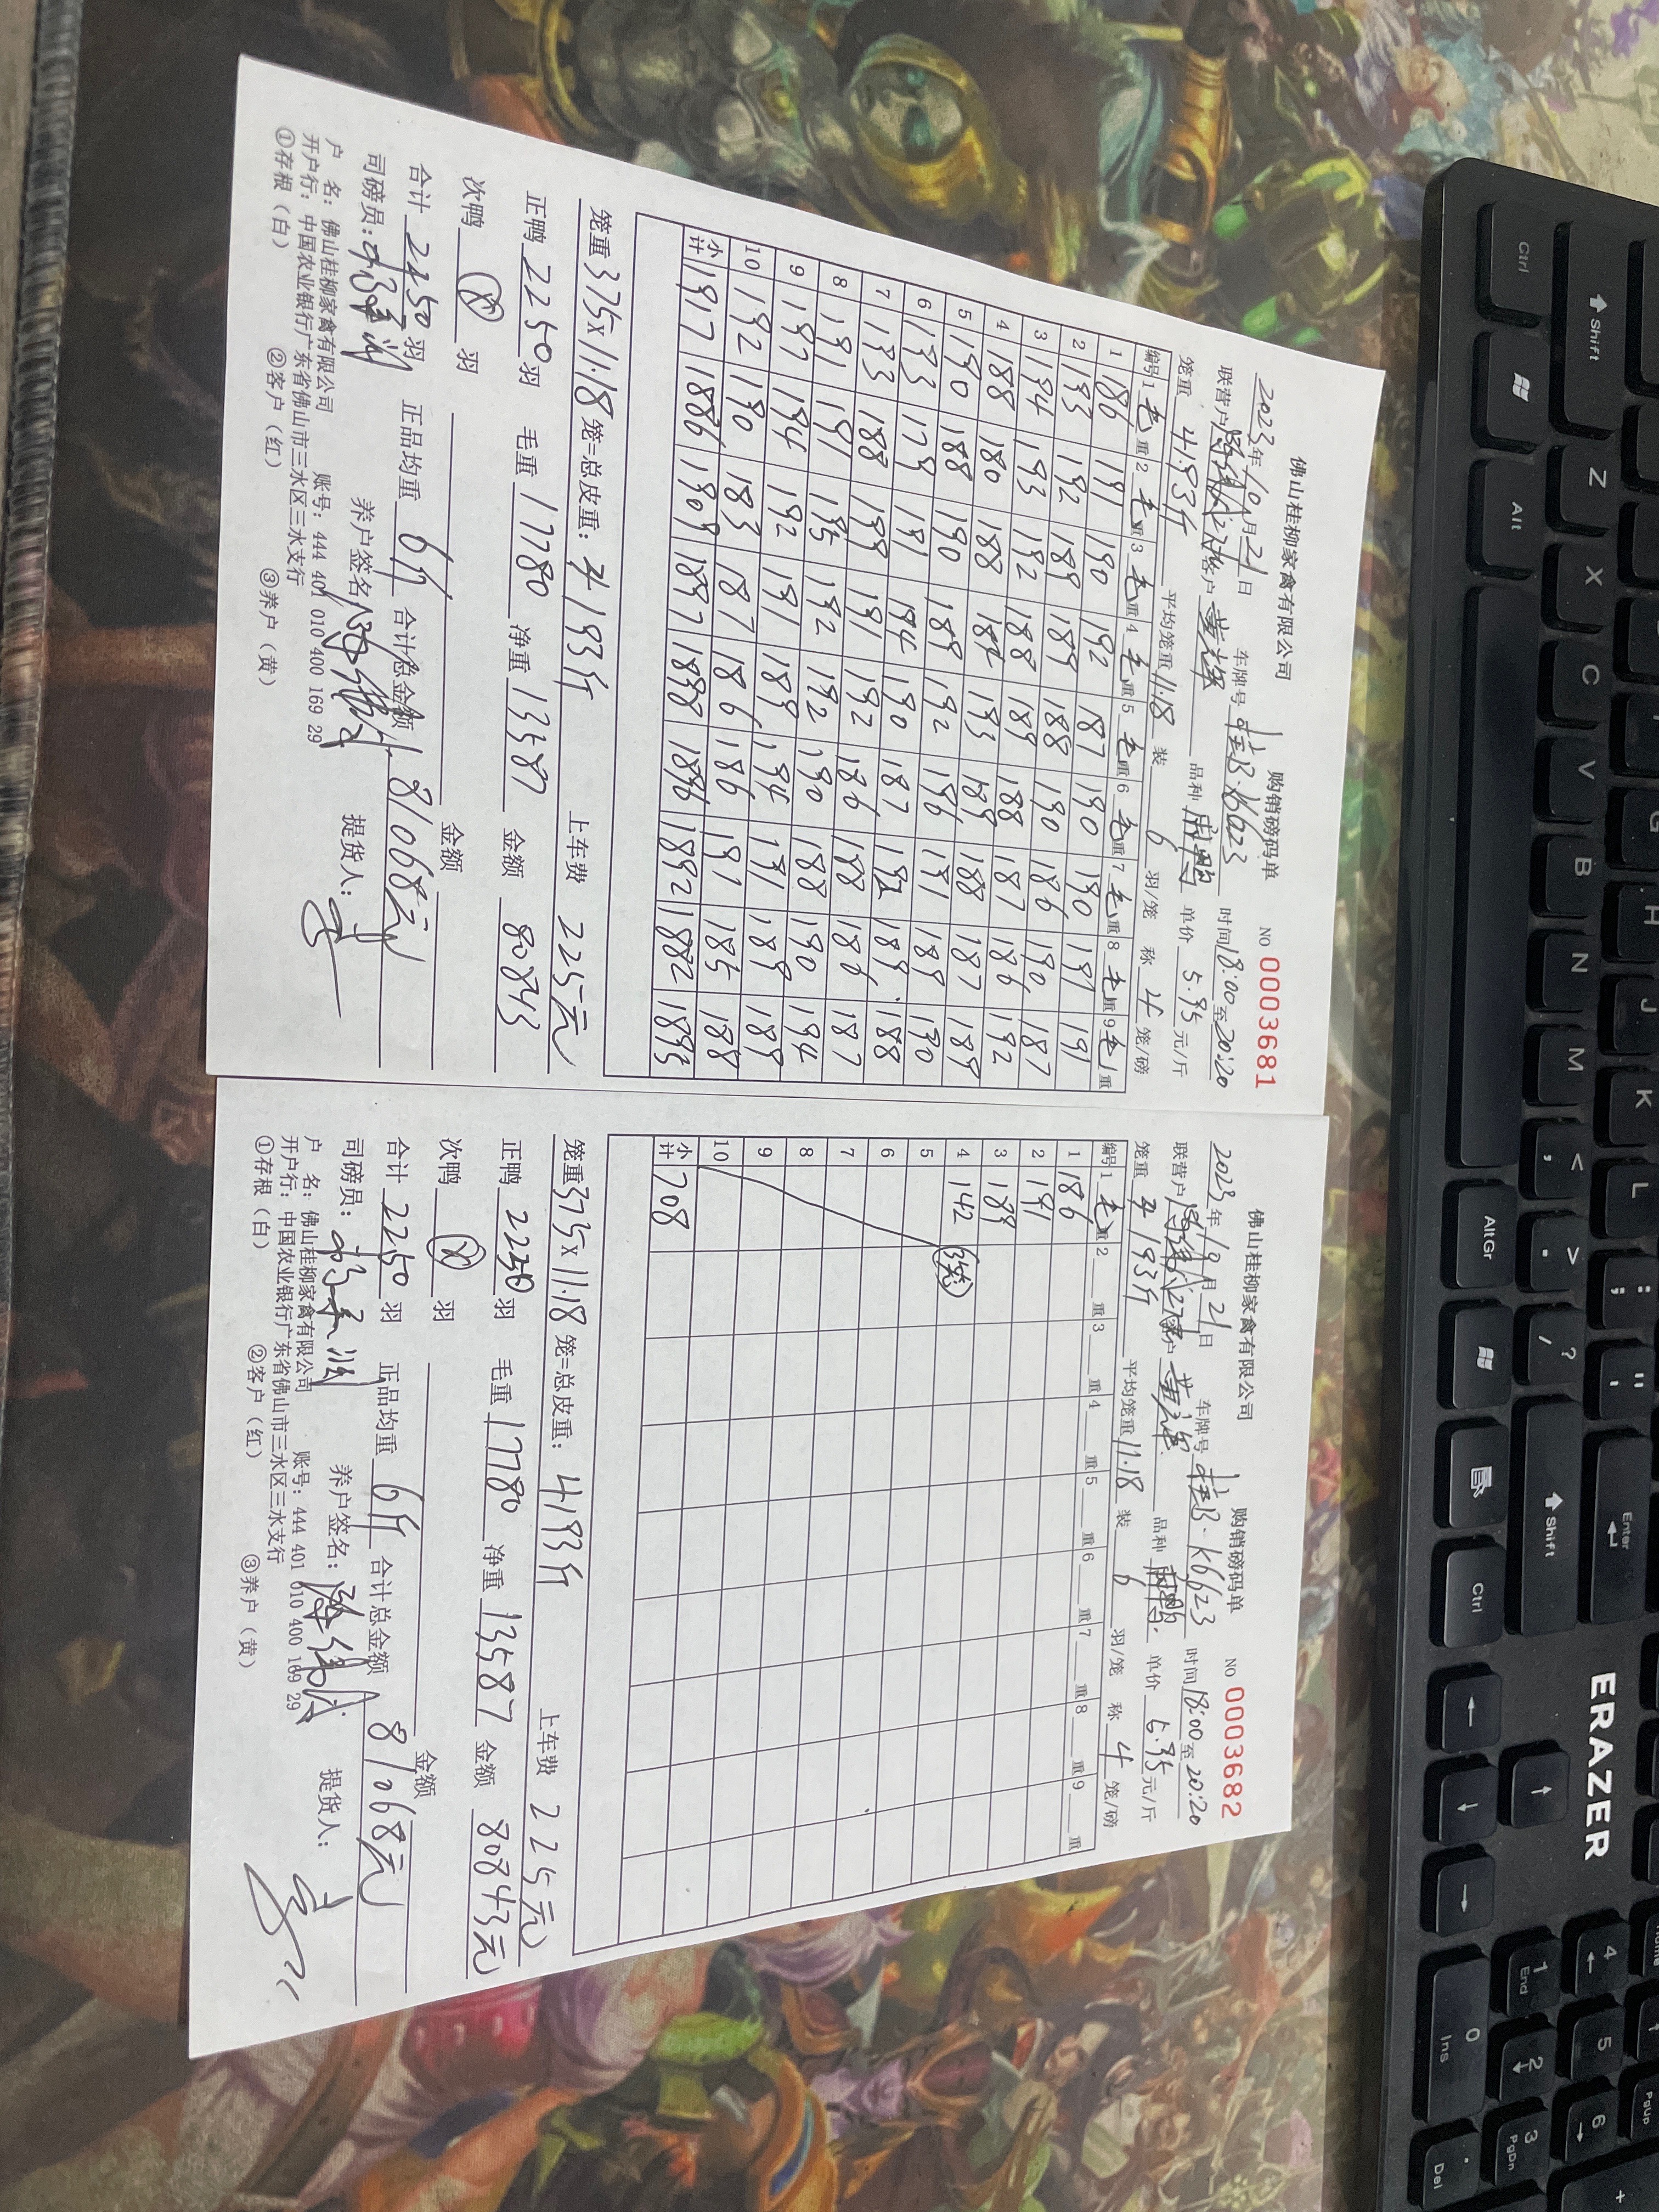 佛山桂柳家禽有限公司 购销磅码单 NO 0003681
2023年10月21日 车牌号 桂B·K6623 时间18:00至20:20
联营户 客户 黄 品种 麻鸭 单价 5.95 元/斤
笼重 4193斤 平均笼重 11.18 装 6 羽/笼 称 4 笼/磅
编号 1毛重 2毛重 3毛重 4毛重 5毛重 6毛重 7毛重 8毛重 9毛重
1 186 191 190 192 187 190 190 197 191
2 193 192 189 189 188 190 186 190 187
3 194 193 192 188 189 188 187 186 192
4 188 180 188 184 193 189 188 187 189
5 190 188 190 189 192 196 191 189 190
6 193 179 191 194 190 187 192 189 188
7 193 188 199 191 192 186 188 186 187
8 191 191 195 192 192 190 188 190 194
9 197 194 192 191 189 194 191 189 189
10 192 190 183 187 186 186 191 185 188
小计 1917 1886 1909 1897 1898 1896 1892 1882 1895
笼重 375×11.18 笼=总皮重: 4193斤 上车费 225元
正鸭 2250 羽 毛重 17780 净重 13587 金额 80843
次鸭 羽 金额
合计 2250 羽 正品均重 6斤 合计总金额 81068元
司磅员: 养户签名: 提货人:
户 名: 佛山桂柳家禽有限公司 账号: 444 401 010 400 169 29
开户行: 中国农业银行广东省佛山市三水区三水支行
①存根(白) ②客户(红) ③养户(黄)
佛山桂柳家禽有限公司 购销磅码单 NO 0003682
2023年10月21日 车牌号 桂B·K6623 时间18:00至20:20
联营户 客户 黄 品种 麻鸭 单价 5.95 元/斤
笼重 4193斤 平均笼重 11.18 装 6 羽/笼 称 4 笼/磅
编号 1毛重 2 重 3 重 4 重 5 重 6 重 7 重 8 重 9 重
1 186
2 191
3 189
4 142 3笼
5
6
7
8
9
10
小计 708
笼重 375×11.18 笼=总皮重: 4193斤 上车费 225元
正鸭 2250 羽 毛重 17780 净重 13587 金额 80843元
次鸭 羽 金额
合计 2250 羽 正品均重 6斤 合计总金额 81068元
司磅员: 养户签名: 提货人:
户 名: 佛山桂柳家禽有限公司 账号: 444 401 010 400 169 29
开户行: 中国农业银行广东省佛山市三水区三水支行
①存根(白) ②客户(红) ③养户(黄)
Ctrl Alt Z X C V B N M < , > . ? / AltGr Shift Ctrl
Shift G H J K L : ; " ' Enter
ERAZER
1 End 2 3 PgDn 4 5 6
0 Ins . Del +
Home PgUp